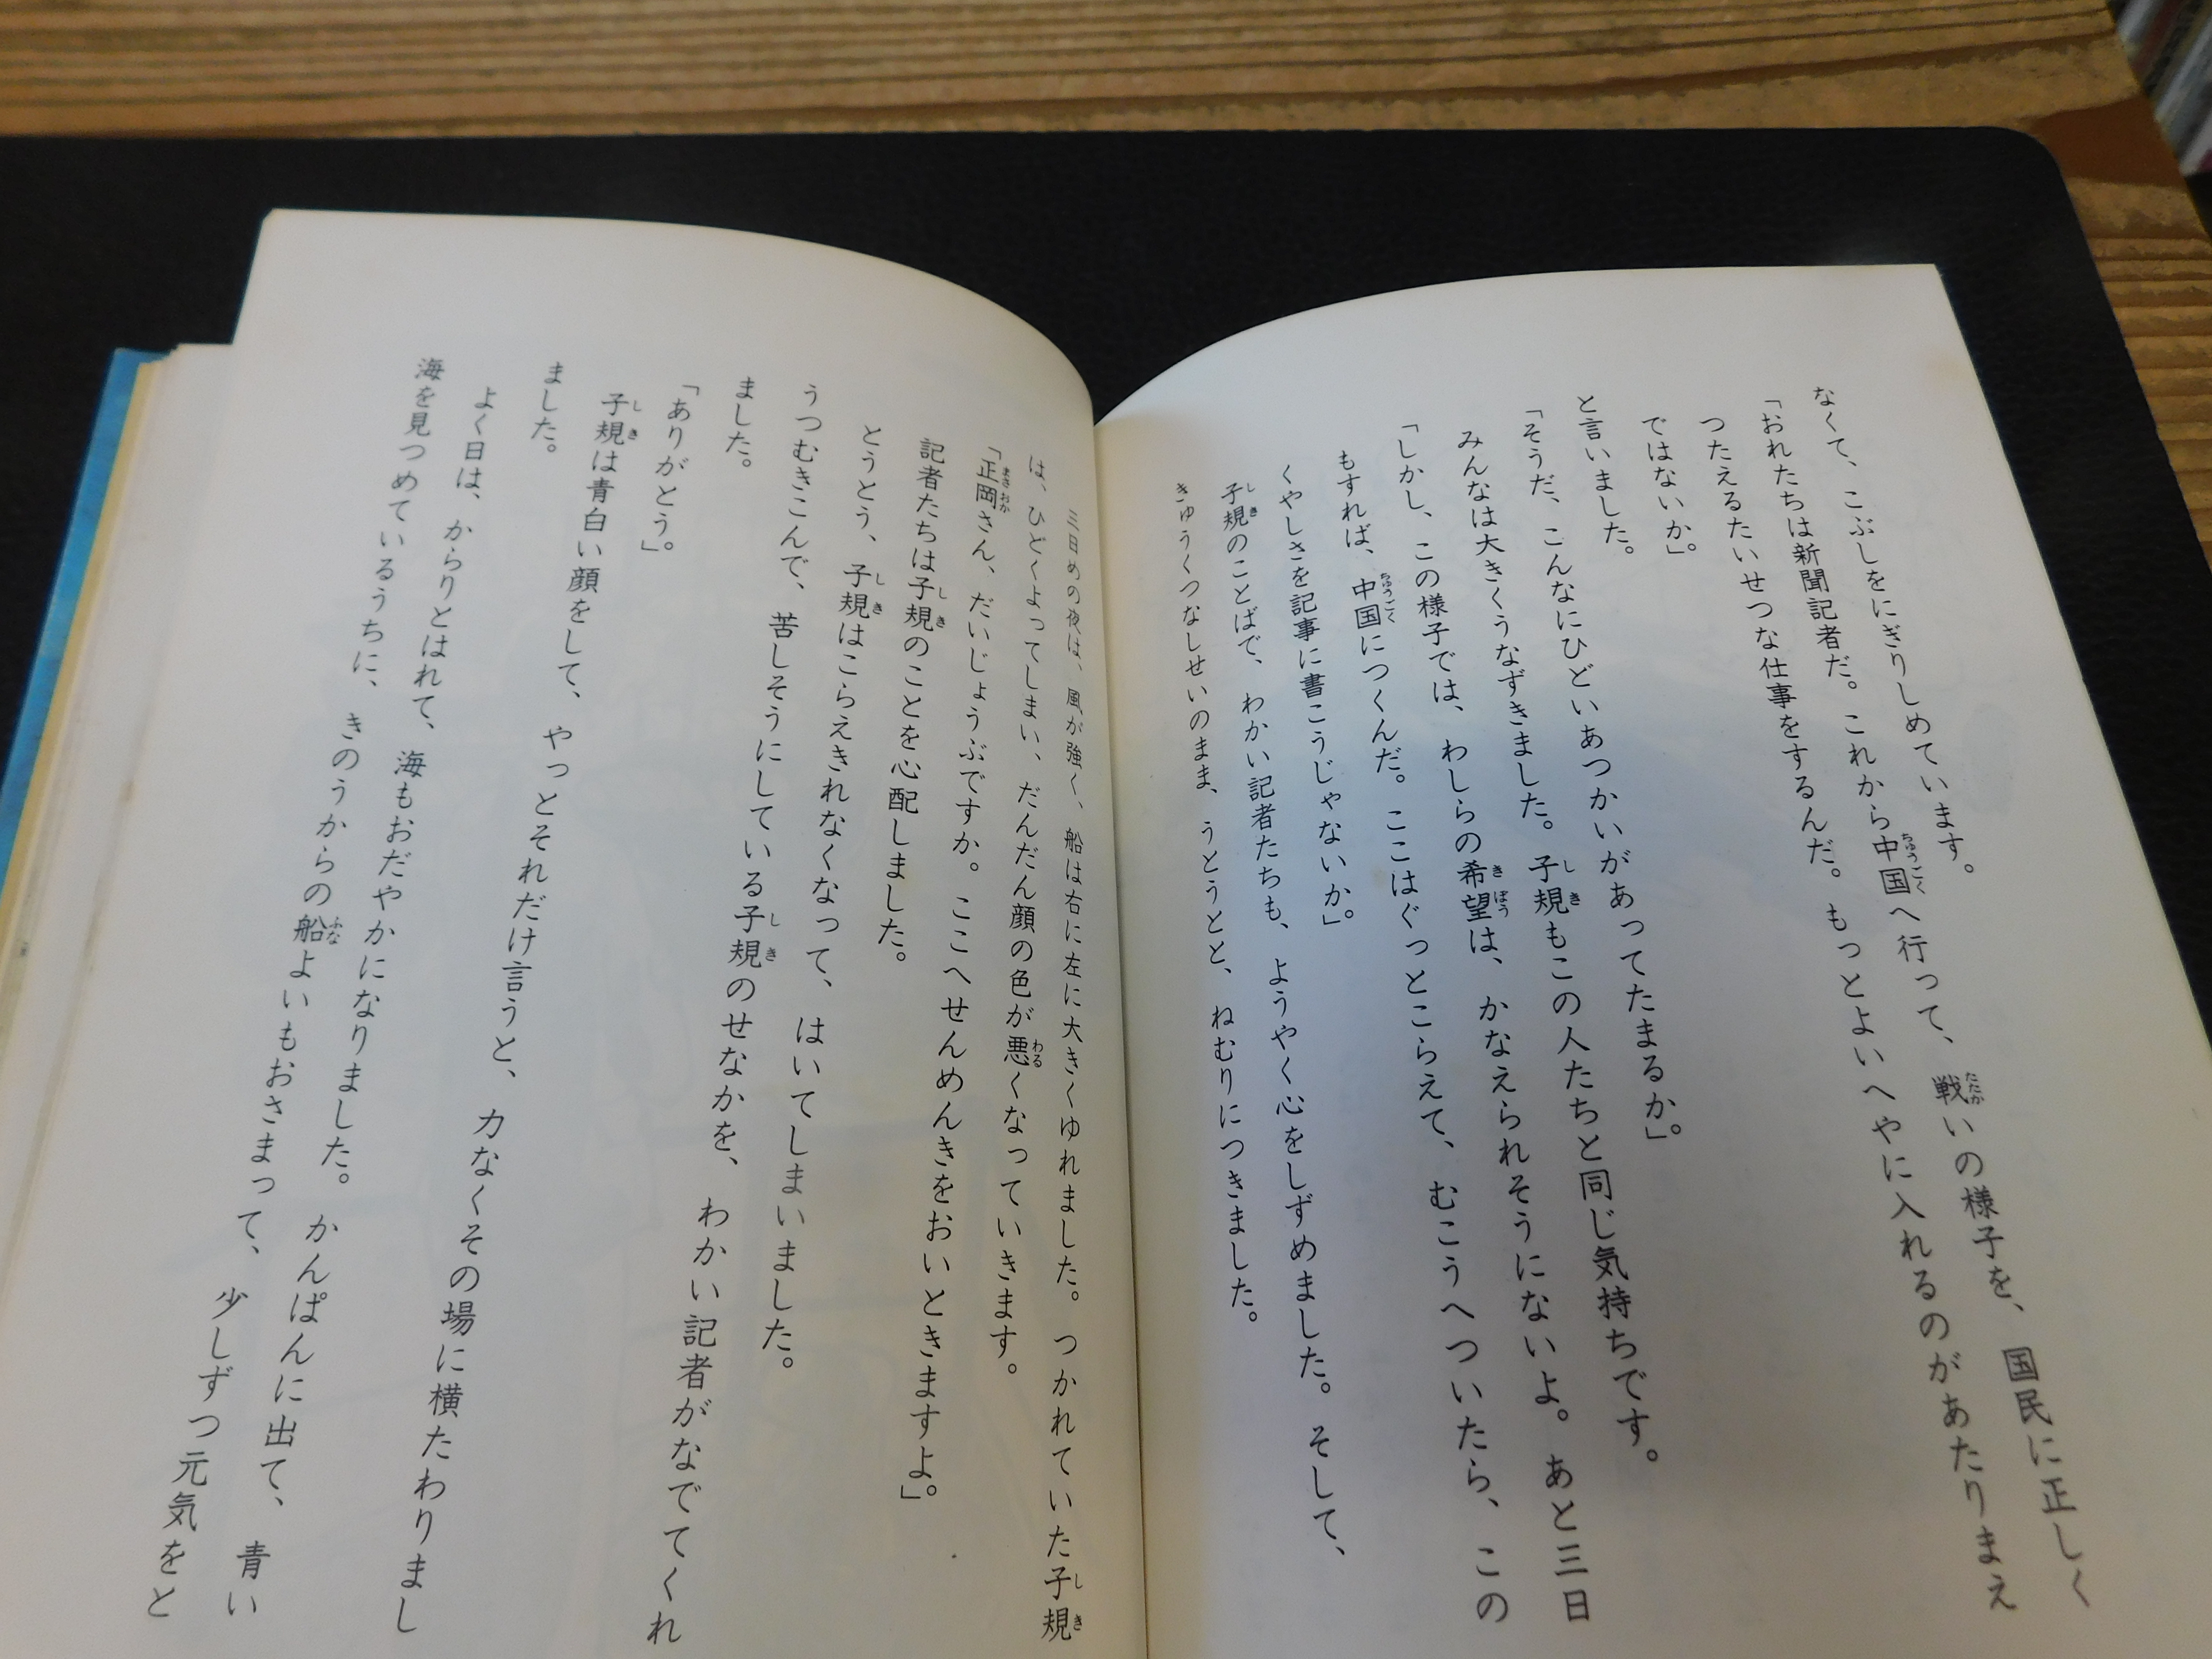 なくて、こぶしをにぎりしめています。
「おれたちは新聞記者だ。これから中国へ行って、戦いの様子を、国民に正しく
つたえるたいせつな仕事をするんだ。もっとよいへやに入れるのがあたりまえ
ではないか。」
と言いました。
「そうだ、こんなにひどいあつかいがあってたまるか。」
みんなは大きくうなずきました。子規もこの人たちと同じ気持ちです。
「しかし、この様子では、わしらの希望は、かなえられそうにないよ。あと三日
もすれば、中国につくんだ。ここはぐっとこらえて、むこうへついたら、この
くやしさを記事に書こうじゃないか。」
子規のことばで、わかい記者たちも、ようやく心をしずめました。そして、
きゅうくつなしせいのまま、うとうとと、ねむりにつきました。
三日めの夜は、風が強く、船は右に左に大きくゆれました。つかれていた子規
は、ひどくよってしまい、だんだん顔の色が悪くなっていきます。
「正岡さん、だいじょうぶですか。ここへせんめんきをおいときますよ。」
記者たちは子規のことを心配しました。
とうとう、子規はこらえきれなくなって、はいてしまいました。
うつむきこんで、苦しそうにしている子規のせなかを、わかい記者がなでてくれ
ました。
「ありがとう。」
子規は青白い顔をして、やっとそれだけ言うと、力なくその場に横たわりまし
ました。
よく日は、からりとはれて、海もおだやかになりました。かんぱんに出て、青い
海を見つめているうちに、きのうからの船よいもおさまって、少しずつ元気をと